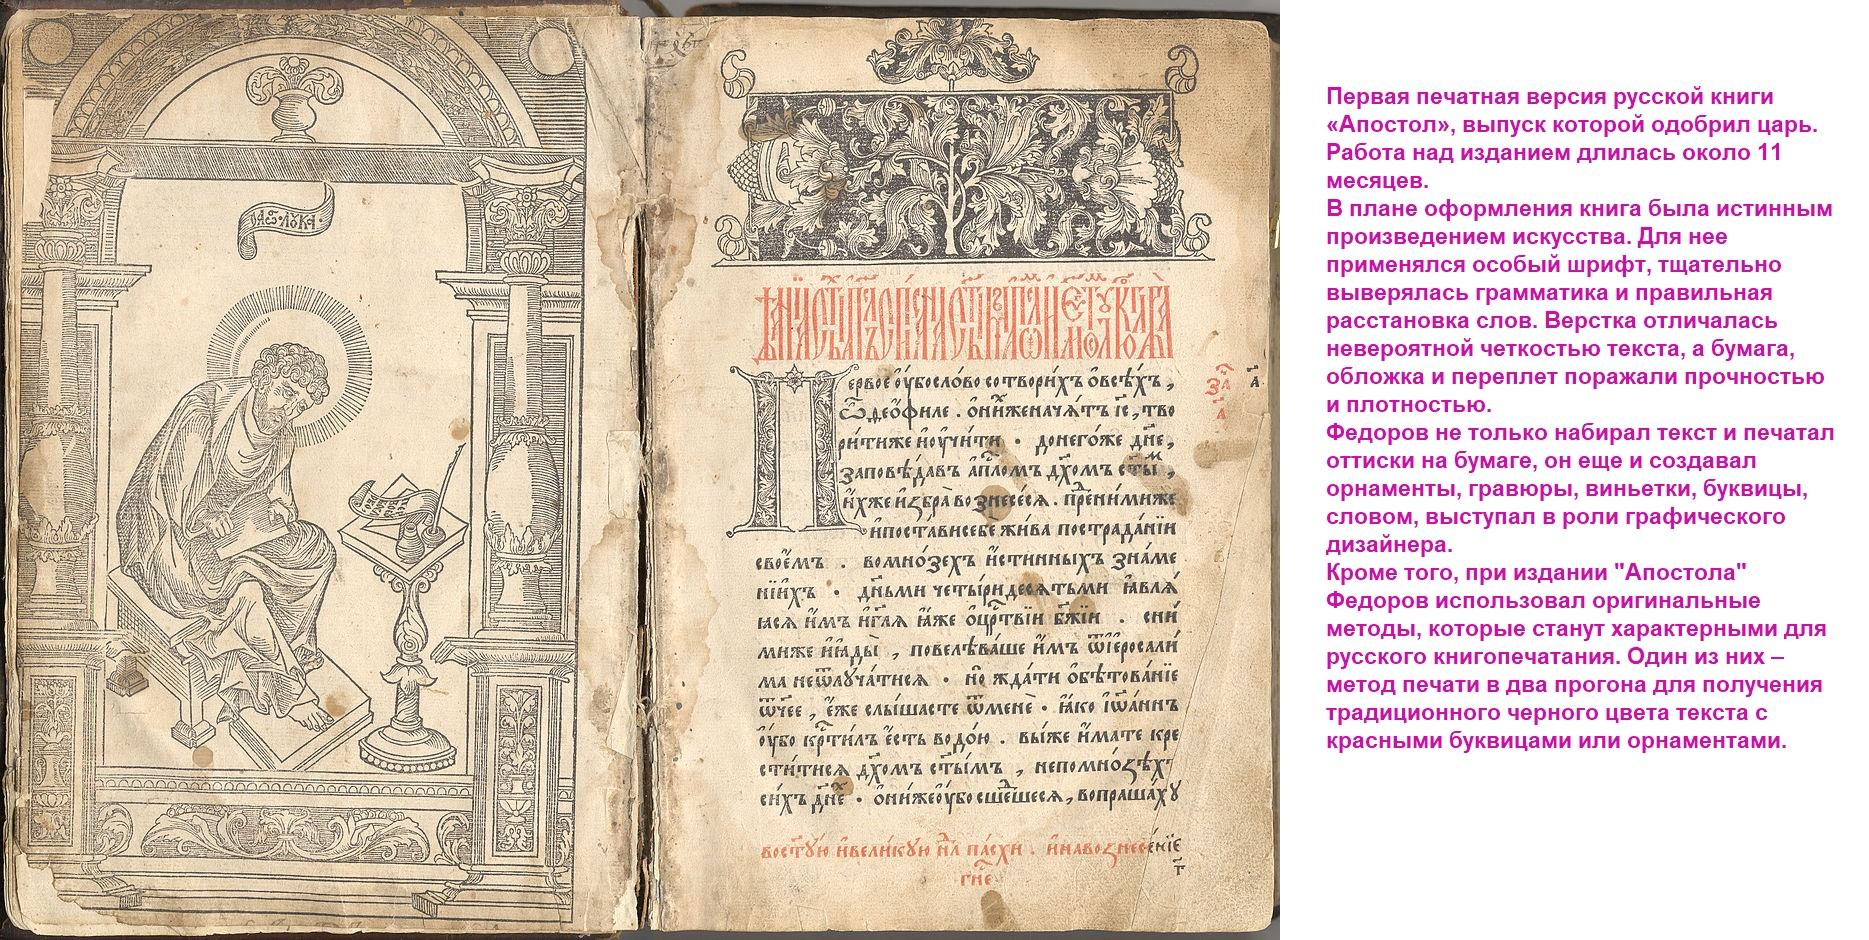 ꙊА҃Г ЛꙊКА
ервое оу҆бо слово сотвори́хъ ѡ҆ всѣ́хъ,
ѽ ѳео́филе. ѡ҆ ни́хже начѧ́тъ і҆с҃, тво
ри́ти же и҆ оу҆чи́ти. до него́же дн҃е,
заповѣ́давъ а҆пⷭ҇ломъ дх҃омъ ст҃ыⷨ,
и҆́хже и҆збра̀ вознесе́сѧ. пред ни́миже
и҆ поста́ви себе жива по страда́нїи
свое́мъ. во мно́зехъ и҆́стинныхъ зна́ме
нїи҆хъ. дн҃ьми четы́ридесѧтьми ꙗ҆влѧ́
ꙗсѧ и҆̀мъ и҆ гл҃ѧ ꙗ҆̀же ѡ҆ цр҃твїи бж҃їи. сни́
миже и҆ ꙗ҆ды̀, повелѣва́ше и҆̀мъ ѿ і҆еросали́
ма не ѿлуча́тисѧ. но жда́ти ѡ҆бѣтова́нїе
ѿчее, е҆́же слы́шасте ѿ менѐ. ꙗ҆́ко і҆ѡа́ннъ
оу҆́бо крⷭ҇ти́лъ е҆́сть водо́ю. вы́же и҆́мате кре
сти́тисѧ дх҃омъ ст҃ымъ, не по мно́зѣхъ
си́хъ дн҃еⷯ. ѡ҆ни́же оу҆́бо сше́дшесѧ, вопраша́хꙋ
Первая печатная версия русской книги
«Апостол», выпуск которой одобрил царь.
Работа над изданием длилась около 11
месяцев.
В плане оформления книга была истинным
произведением искусства. Для нее
применялся особый шрифт, тщательно
выверялась грамматика и правильная
расстановка слов. Верстка отличалась
невероятной четкостью текста, а бумага,
обложка и переплет поражали прочностью
и плотностью.
Федоров не только набирал текст и печатал
оттиски на бумаге, он еще и создавал
орнаменты, гравюры, виньетки, буквицы,
словом, выступал в роли графического
дизайнера.
Кроме того, при издании "Апостола"
Федоров использовал оригинальные
методы, которые станут характерными для
русского книгопечатания. Один из них –
метод печати в два прогона для получения
традиционного черного цвета текста с
красными буквицами или орнаментами.